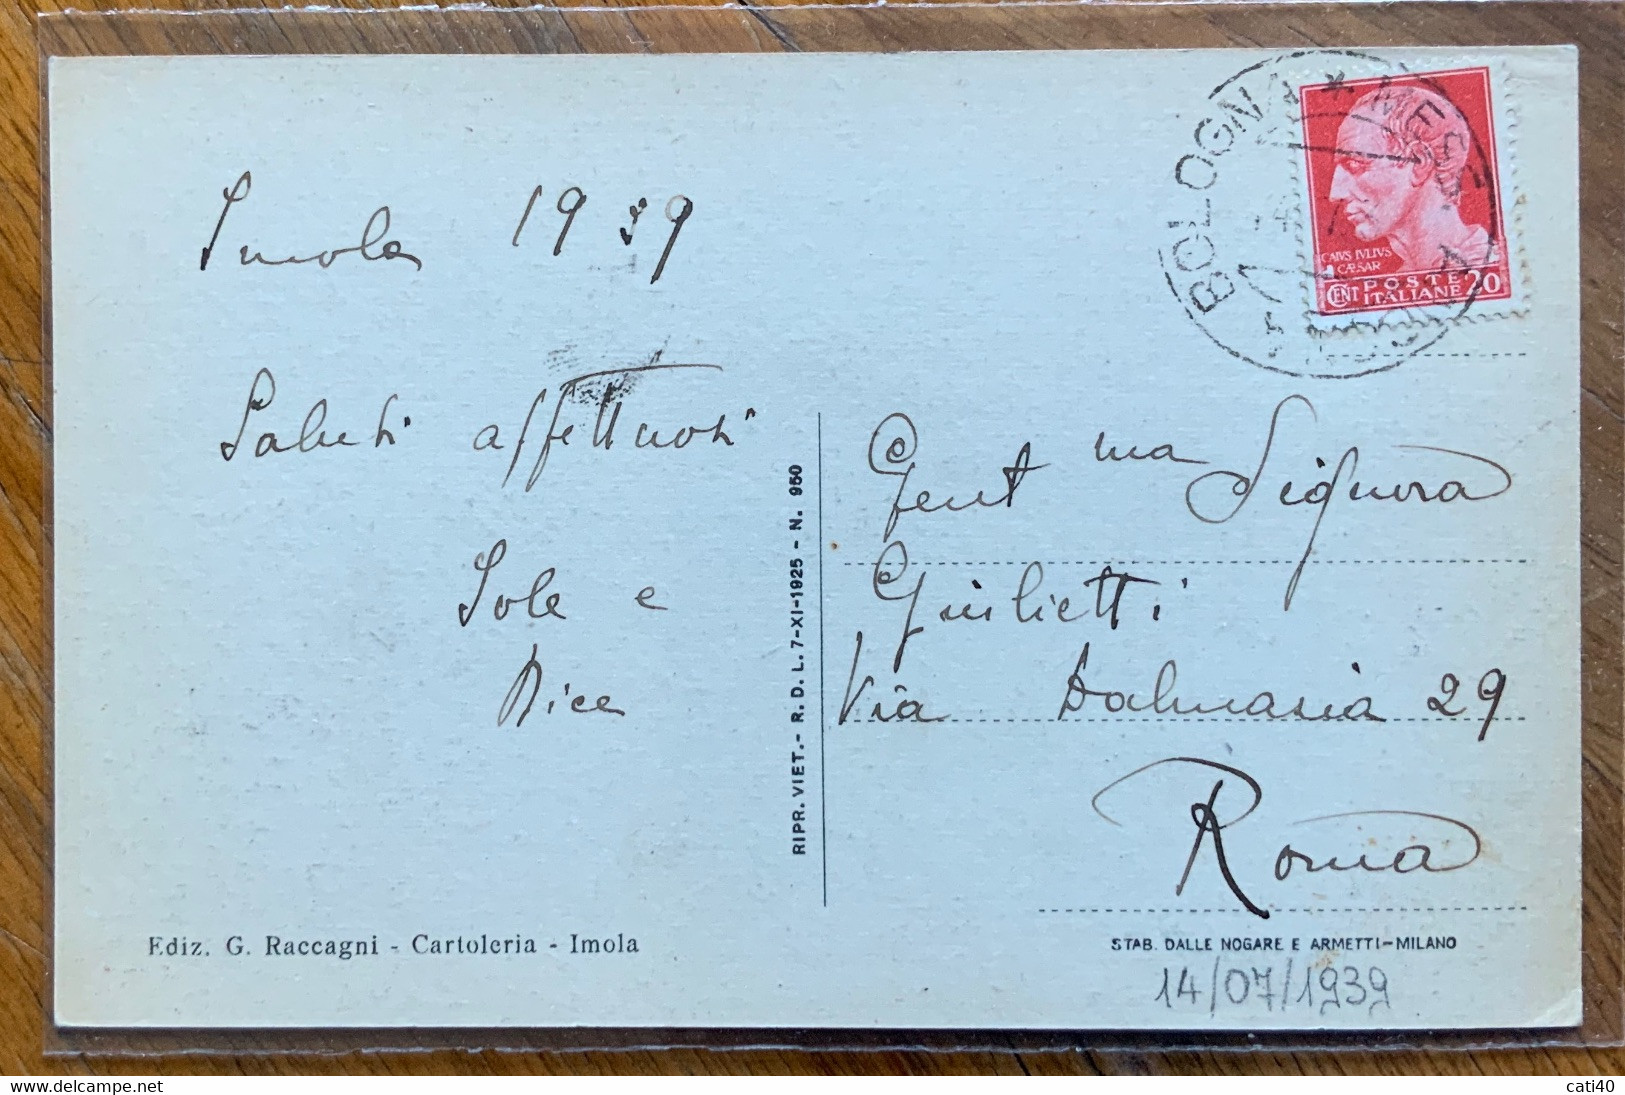 Imola 1939
Saluti affettuosi
Iole e
Nice
BOLOGNA * MESSAGG
CAIVS IVLIVS
CÆSAR
CENT POSTE ITALIANE 20
Gent ma Signora
Giulietti
Via Dalmasia 29
Roma
RIPR. VIET.- R. D. L. 7-XI-1925 - N. 950
Ediz. G. Raccagni - Cartoleria - Imola
STAB. DALLE NOGARE E ARMETTI-MILANO
14/07/1939
cati40